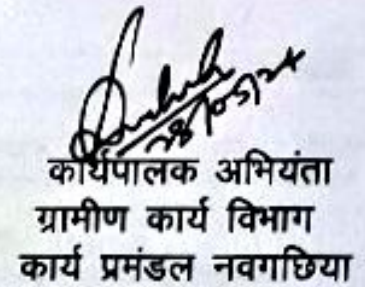 28/05/24
कार्यपालक अभियंता
ग्रामीण कार्य विभाग
कार्य प्रमंडल नवगछिया